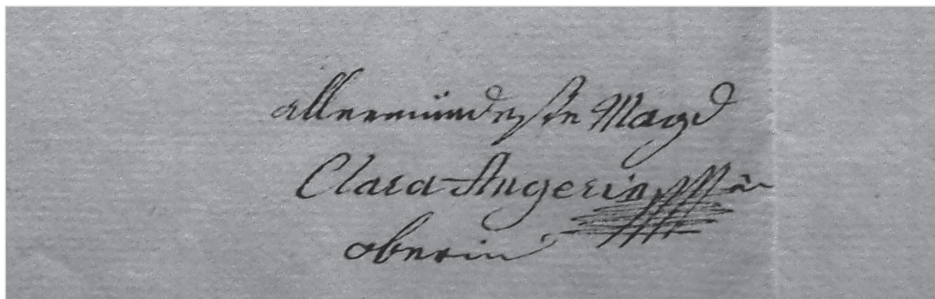 allermündeste Magd
Clara Angerin
oberin